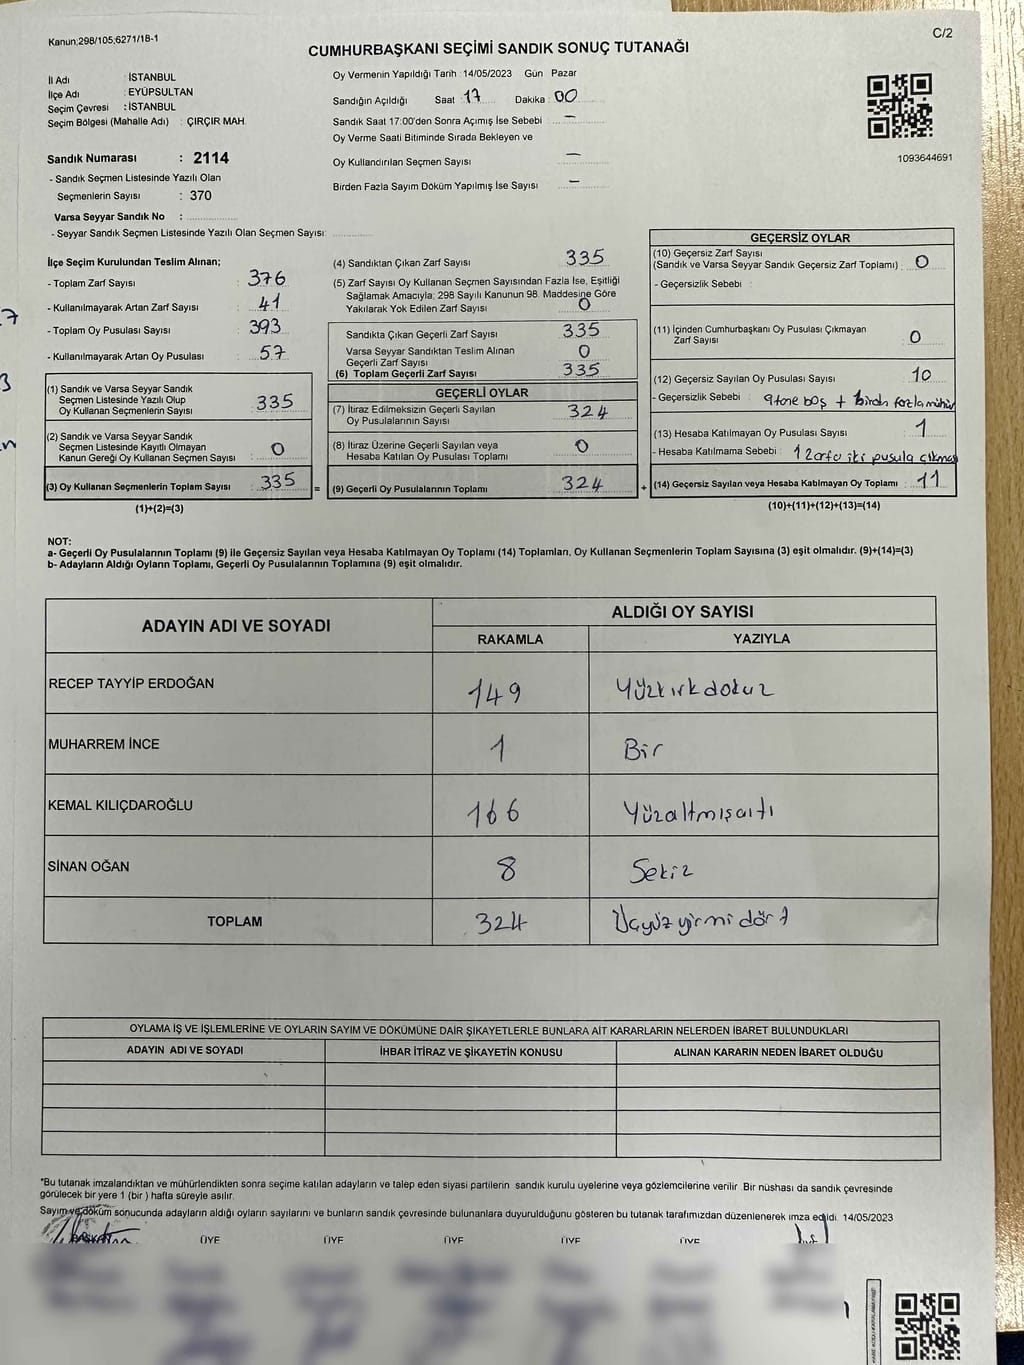 Kanun;298/105;6271/18-1
C/2
CUMHURBAŞKANI SEÇİMİ SANDIK SONUÇ TUTANAĞI
İl Adı : İSTANBUL
İlçe Adı : EYÜPSULTAN
Seçim Çevresi : İSTANBUL
Seçim Bölgesi (Mahalle Adı) : ÇIRÇIR MAH.
Sandık Numarası : 2114
- Sandık Seçmen Listesinde Yazılı Olan
Seçmenlerin Sayısı : 370
Varsa Seyyar Sandık No :
- Seyyar Sandık Seçmen Listesinde Yazılı Olan Seçmen Sayısı:
Oy Vermenin Yapıldığı Tarih :14/05/2023 Gün Pazar
Sandığın Açıldığı Saat 17 Dakika 00
Sandık Saat 17:00'den Sonra Açımış İse Sebebi : —
Oy Verme Saati Bitiminde Sırada Bekleyen ve
Oy Kullandırılan Seçmen Sayısı —
Birden Fazla Sayım Döküm Yapılmış İse Sayısı —
1093644691
İlçe Seçim Kurulundan Teslim Alınan;
- Toplam Zarf Sayısı : 376
- Kullanılmayarak Artan Zarf Sayısı : 41
- Toplam Oy Pusulası Sayısı : 393
- Kullanılmayarak Artan Oy Pusulası : 57
(1) Sandık ve Varsa Seyyar Sandık
Seçmen Listesinde Yazılı Olup
Oy Kullanan Seçmenlerin Sayısı : 335
(2) Sandık ve Varsa Seyyar Sandık
Seçmen Listesinde Kayıtlı Olmayan
Kanun Gereği Oy Kullanan Seçmen Sayısı : 0
(3) Oy Kullanan Seçmenlerin Toplam Sayısı : 335
(1)+(2)=(3)
(4) Sandıktan Çıkan Zarf Sayısı 335
(5) Zarf Sayısı Oy Kullanan Seçmen Sayısından Fazla İse, Eşitliği
Sağlamak Amacıyla; 298 Sayılı Kanunun 98. Maddesine Göre
Yakılarak Yok Edilen Zarf Sayısı 0
Sandıkta Çıkan Geçerli Zarf Sayısı 335
Varsa Seyyar Sandıktan Teslim Alınan
Geçerli Zarf Sayısı 0
(6) Toplam Geçerli Zarf Sayısı 335
GEÇERLİ OYLAR
(7) İtiraz Edilmeksizin Geçerli Sayılan
Oy Pusulalarının Sayısı 324
(8) İtiraz Üzerine Geçerli Sayılan veya
Hesaba Katılan Oy Pusulası Toplamı 0
= (9) Geçerli Oy Pusulalarının Toplamı 324 +
GEÇERSİZ OYLAR
(10) Geçersiz Zarf Sayısı
(Sandık ve Varsa Seyyar Sandık Geçersiz Zarf Toplamı) : 0
- Geçersizlik Sebebi :
(11) İçinden Cumhurbaşkanı Oy Pusulası Çıkmayan
Zarf Sayısı 0
(12) Geçersiz Sayılan Oy Pusulası Sayısı : 10
- Geçersizlik Sebebi : 9 tane boş + birden fazla mühür
(13) Hesaba Katılmayan Oy Pusulası Sayısı : 1
- Hesaba Katılmama Sebebi : 1 zarfa iki pusula çıkması
(14) Geçersiz Sayılan veya Hesaba Katılmayan Oy Toplamı : 11
(10)+(11)+(12)+(13)=(14)
NOT:
a- Geçerli Oy Pusulalarının Toplamı (9) ile Geçersiz Sayılan veya Hesaba Katılmayan Oy Toplamı (14) Toplamları, Oy Kullanan Seçmenlerin Toplam Sayısına (3) eşit olmalıdır. (9)+(14)=(3)
b- Adayların Aldığı Oyların Toplamı, Geçerli Oy Pusulalarının Toplamına (9) eşit olmalıdır.
ADAYIN ADI VE SOYADI ALDIĞI OY SAYISI
RAKAMLA YAZIYLA
RECEP TAYYİP ERDOĞAN 149 Yüzkırkdokuz
MUHARREM İNCE 1 Bir
KEMAL KILIÇDAROĞLU 166 Yüzaltmışaltı
SİNAN OĞAN 8 Sekiz
TOPLAM 324 Üçyüzyirmidört
OYLAMA İŞ VE İŞLEMLERİNE VE OYLARIN SAYIM VE DÖKÜMÜNE DAİR ŞİKAYETLERLE BUNLARA AİT KARARLARIN NELERDEN İBARET BULUNDUKLARI
ADAYIN ADI VE SOYADI İHBAR İTİRAZ VE ŞİKAYETİN KONUSU ALINAN KARARIN NEDEN İBARET OLDUĞU
"Bu tutanak imzalandıktan ve mühürlendikten sonra seçime katılan adayların ve talep eden siyasi partilerin sandık kurulu üyelerine veya gözlemcilerine verilir. Bir nüshası da sandık çevresinde
görülecek bir yere 1 (bir ) hafta süreyle asılır.
Sayım ve döküm sonucunda adayların aldığı oyların sayılarını ve bunların sandık çevresinde bulunanlara duyurulduğunu gösteren bu tutanak tarafımızdan düzenlenerek imza edildi. 14/05/2023
BAŞKAN ÜYE ÜYE ÜYE ÜYE ÜYE